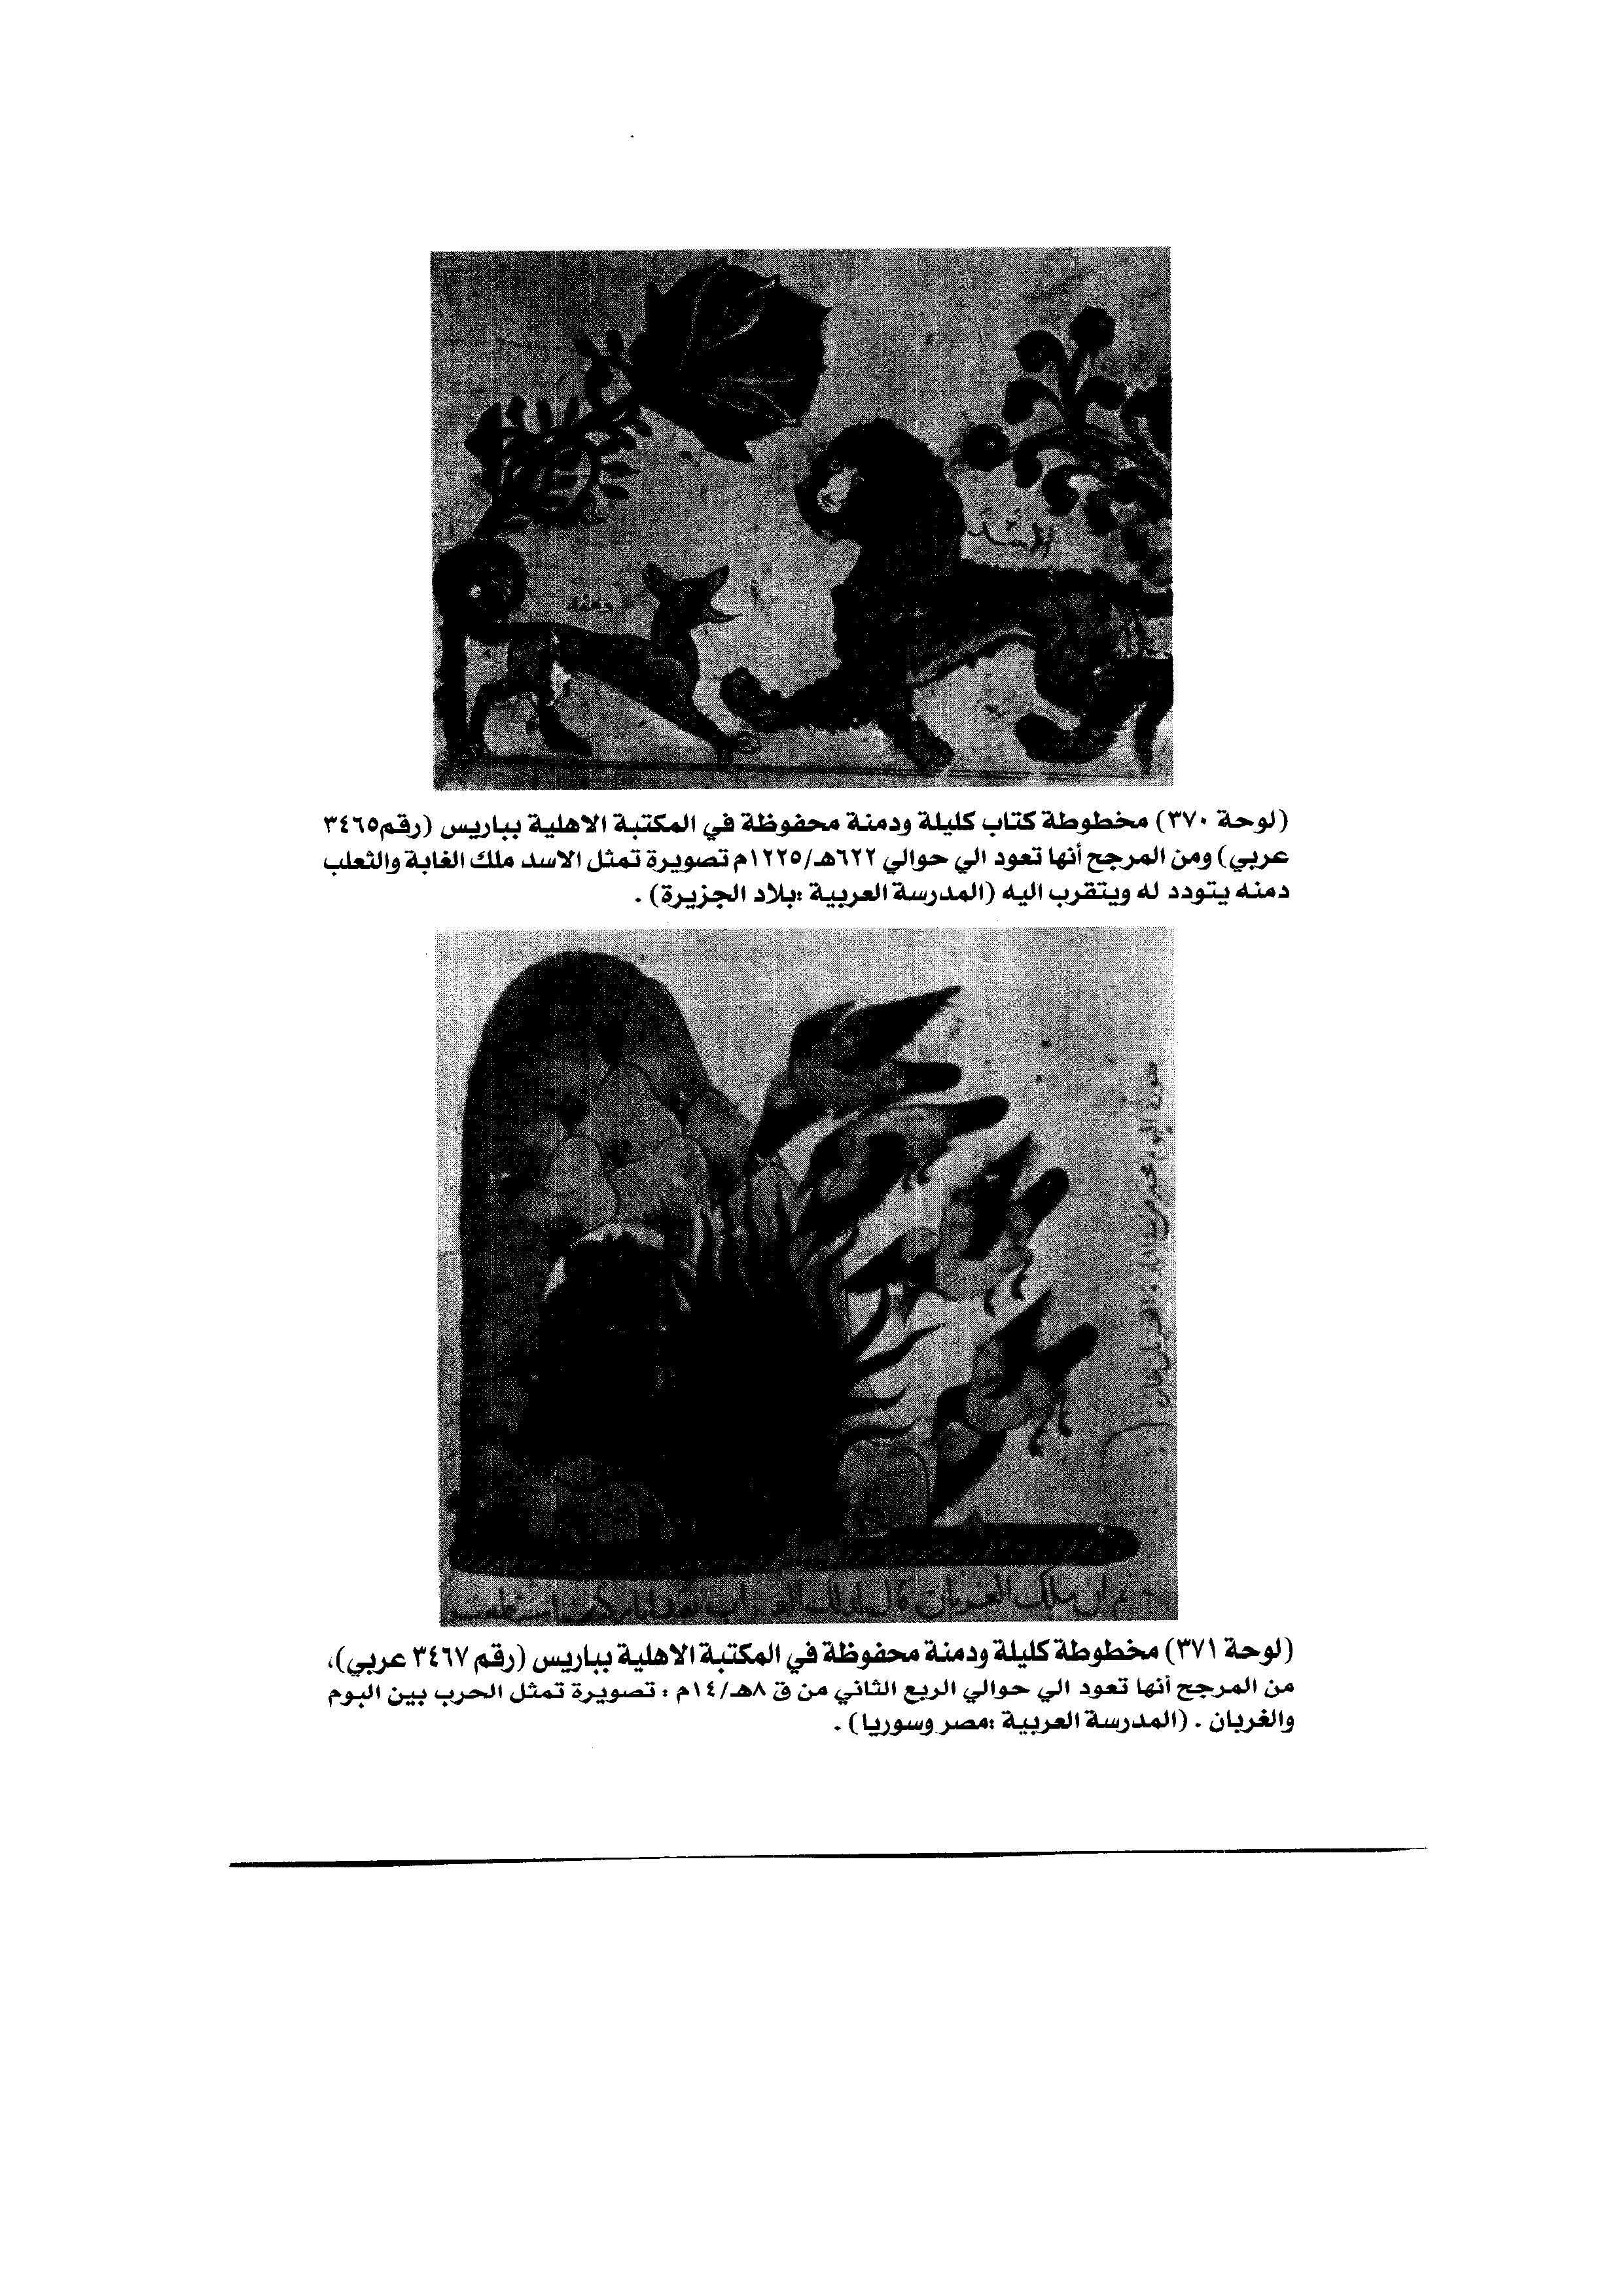 الاسد
دمنه
(لوحة ٣٧٠) مخطوطة كتاب كليلة ودمنة محفوظة في المكتبة الاهلية بباريس (رقم٣٤٦٥
عربي) ومن المرجح أنها تعود الي حوالي ٦٢٢هـ/١٢٢٥م تصويرة تمثل الاسد ملك الغابة والثعلب
دمنه يتودد له ويتقرب اليه (المدرسة العربية :بلاد الجزيرة) .
صورة البوم
ثم ان ملك الغربان قال لذلك الغراب
(لوحة ٣٧١) مخطوطة كليلة ودمنة محفوظة في المكتبة الاهلية بباريس (رقم ٣٤٦٧ عربي)،
من المرجح أنها تعود الي حوالي الربع الثاني من ق ٨هـ/١٤م : تصويرة تمثل الحرب بين البوم
والغربان . (المدرسة العربية :مصر وسوريا) .